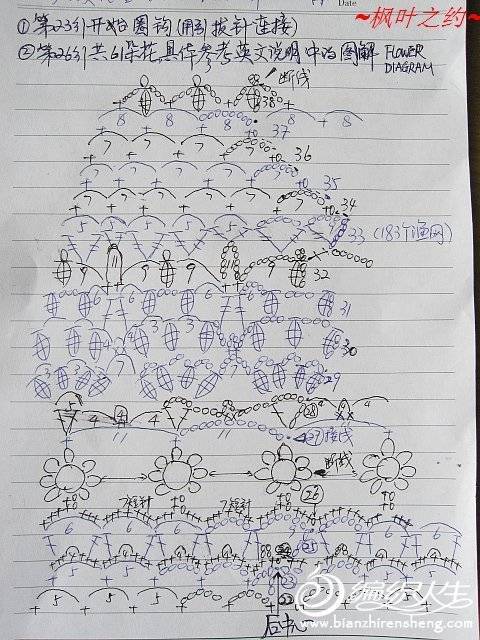 Date
~枫叶之约~
①第23行开始圈钩(用引拔针连接)
②第26行共61朵花,具体参考英文说明中的图解 FLOWER
DIAGRAM
断线
38
8 8 8 8 8
37
7 7 7 7
36
7 7 7 7
35
7 7 7 7
34
5 5 5 5
33 (183个渔网)
9 9 9
32
6 6 6 6
31
3 3 3 3
30
29
4 4 4 4 4
28
11 11
27 接线
断线
26
7短针 7短针
6 6 6 6 6 6
25
24
23
5 5 5 5 5
22
后中
编织人生
www.bianzhirensheng.com